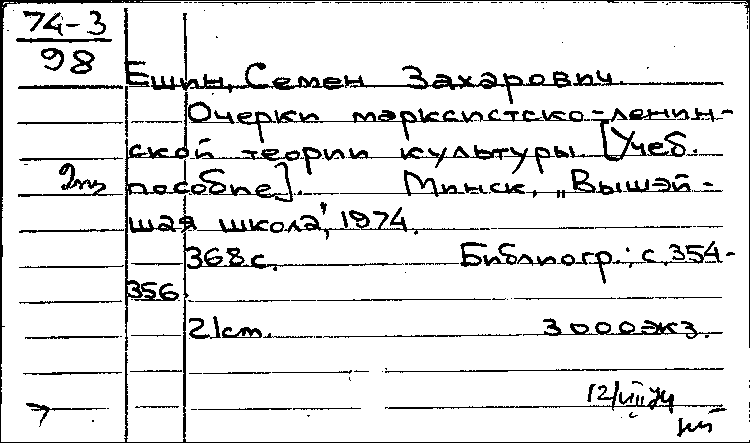 74-3
98
Ешин, Семен Захарович.
Очерки марксистско-ленин-
ской теории культуры. [Учеб.
пособие]. Минск, „Вышэй-
шая школа", 1974.
368 с. Библиогр.: с. 354-
356.
21 см. 3000 экз.
12/VIII 74